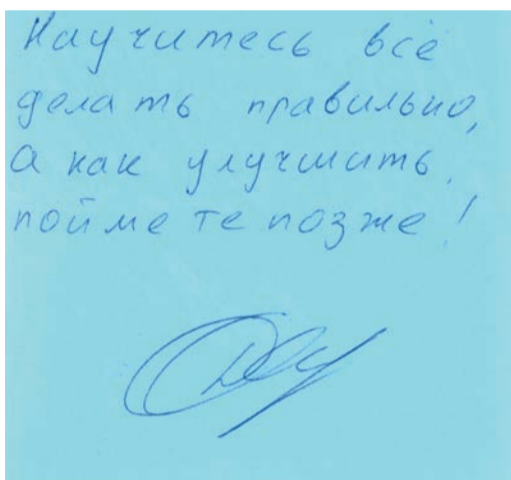 Научитесь всё
делать правильно,
а как улучшить,
поймете позже!